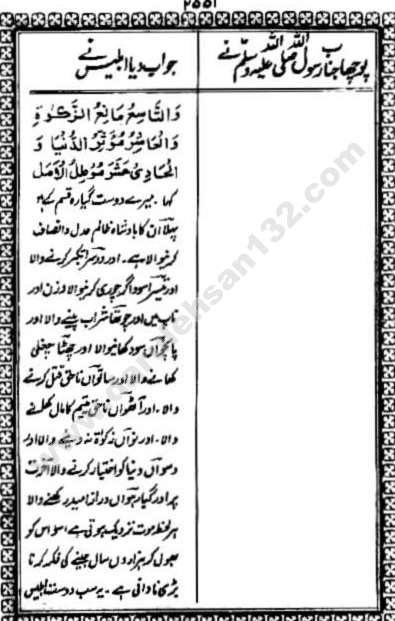 ۲۵۵۱
پوچھا جناب رسول اللہ صلی اللہ علیہ وسلم نے
جواب دیا ابلیس نے
وَالتَّاسِعُ مَانِعُ الزَّكٰوةِ
وَالْعَاشِرُ مُؤْثِرُ الدُّنْيَا وَ
الْحَادِیْ عَشَرَ مُوْطِلُ الْاَمَلِ
کہا۔ میرے دوست گیارہ قسم کے ہیں
پہلا ان کا بادشاہ ظالم عدل و انصاف
کرنیوالا ہے۔ اور دوسرا تکبر کرنے والا
اور تیسرا سوداگر چوری کرنیوالا وزن اور
ناپ میں اور چوتھا شراب پینے والا اور
پانچواں سود کھانیوالا اور چھٹا چغلی
کھانے والا اور ساتواں ناحق قتل کرنے
والا۔ اور آٹھواں ناحق یتیم کا مال کھانے
والا۔ اور نواں زکوٰۃ نہ دینے والا اور
دسواں دنیا کو اختیار کرنے والا آخرت
پر اور گیارہواں دراز امید رکھنے والا
ہر لحظہ موت نزدیک ہوتی ہے، سو اس کو
بھول کر ہزاروں سال جینے کی فکر کرنا
بڑی نادانی ہے۔ یہ سب دوست ابلیس